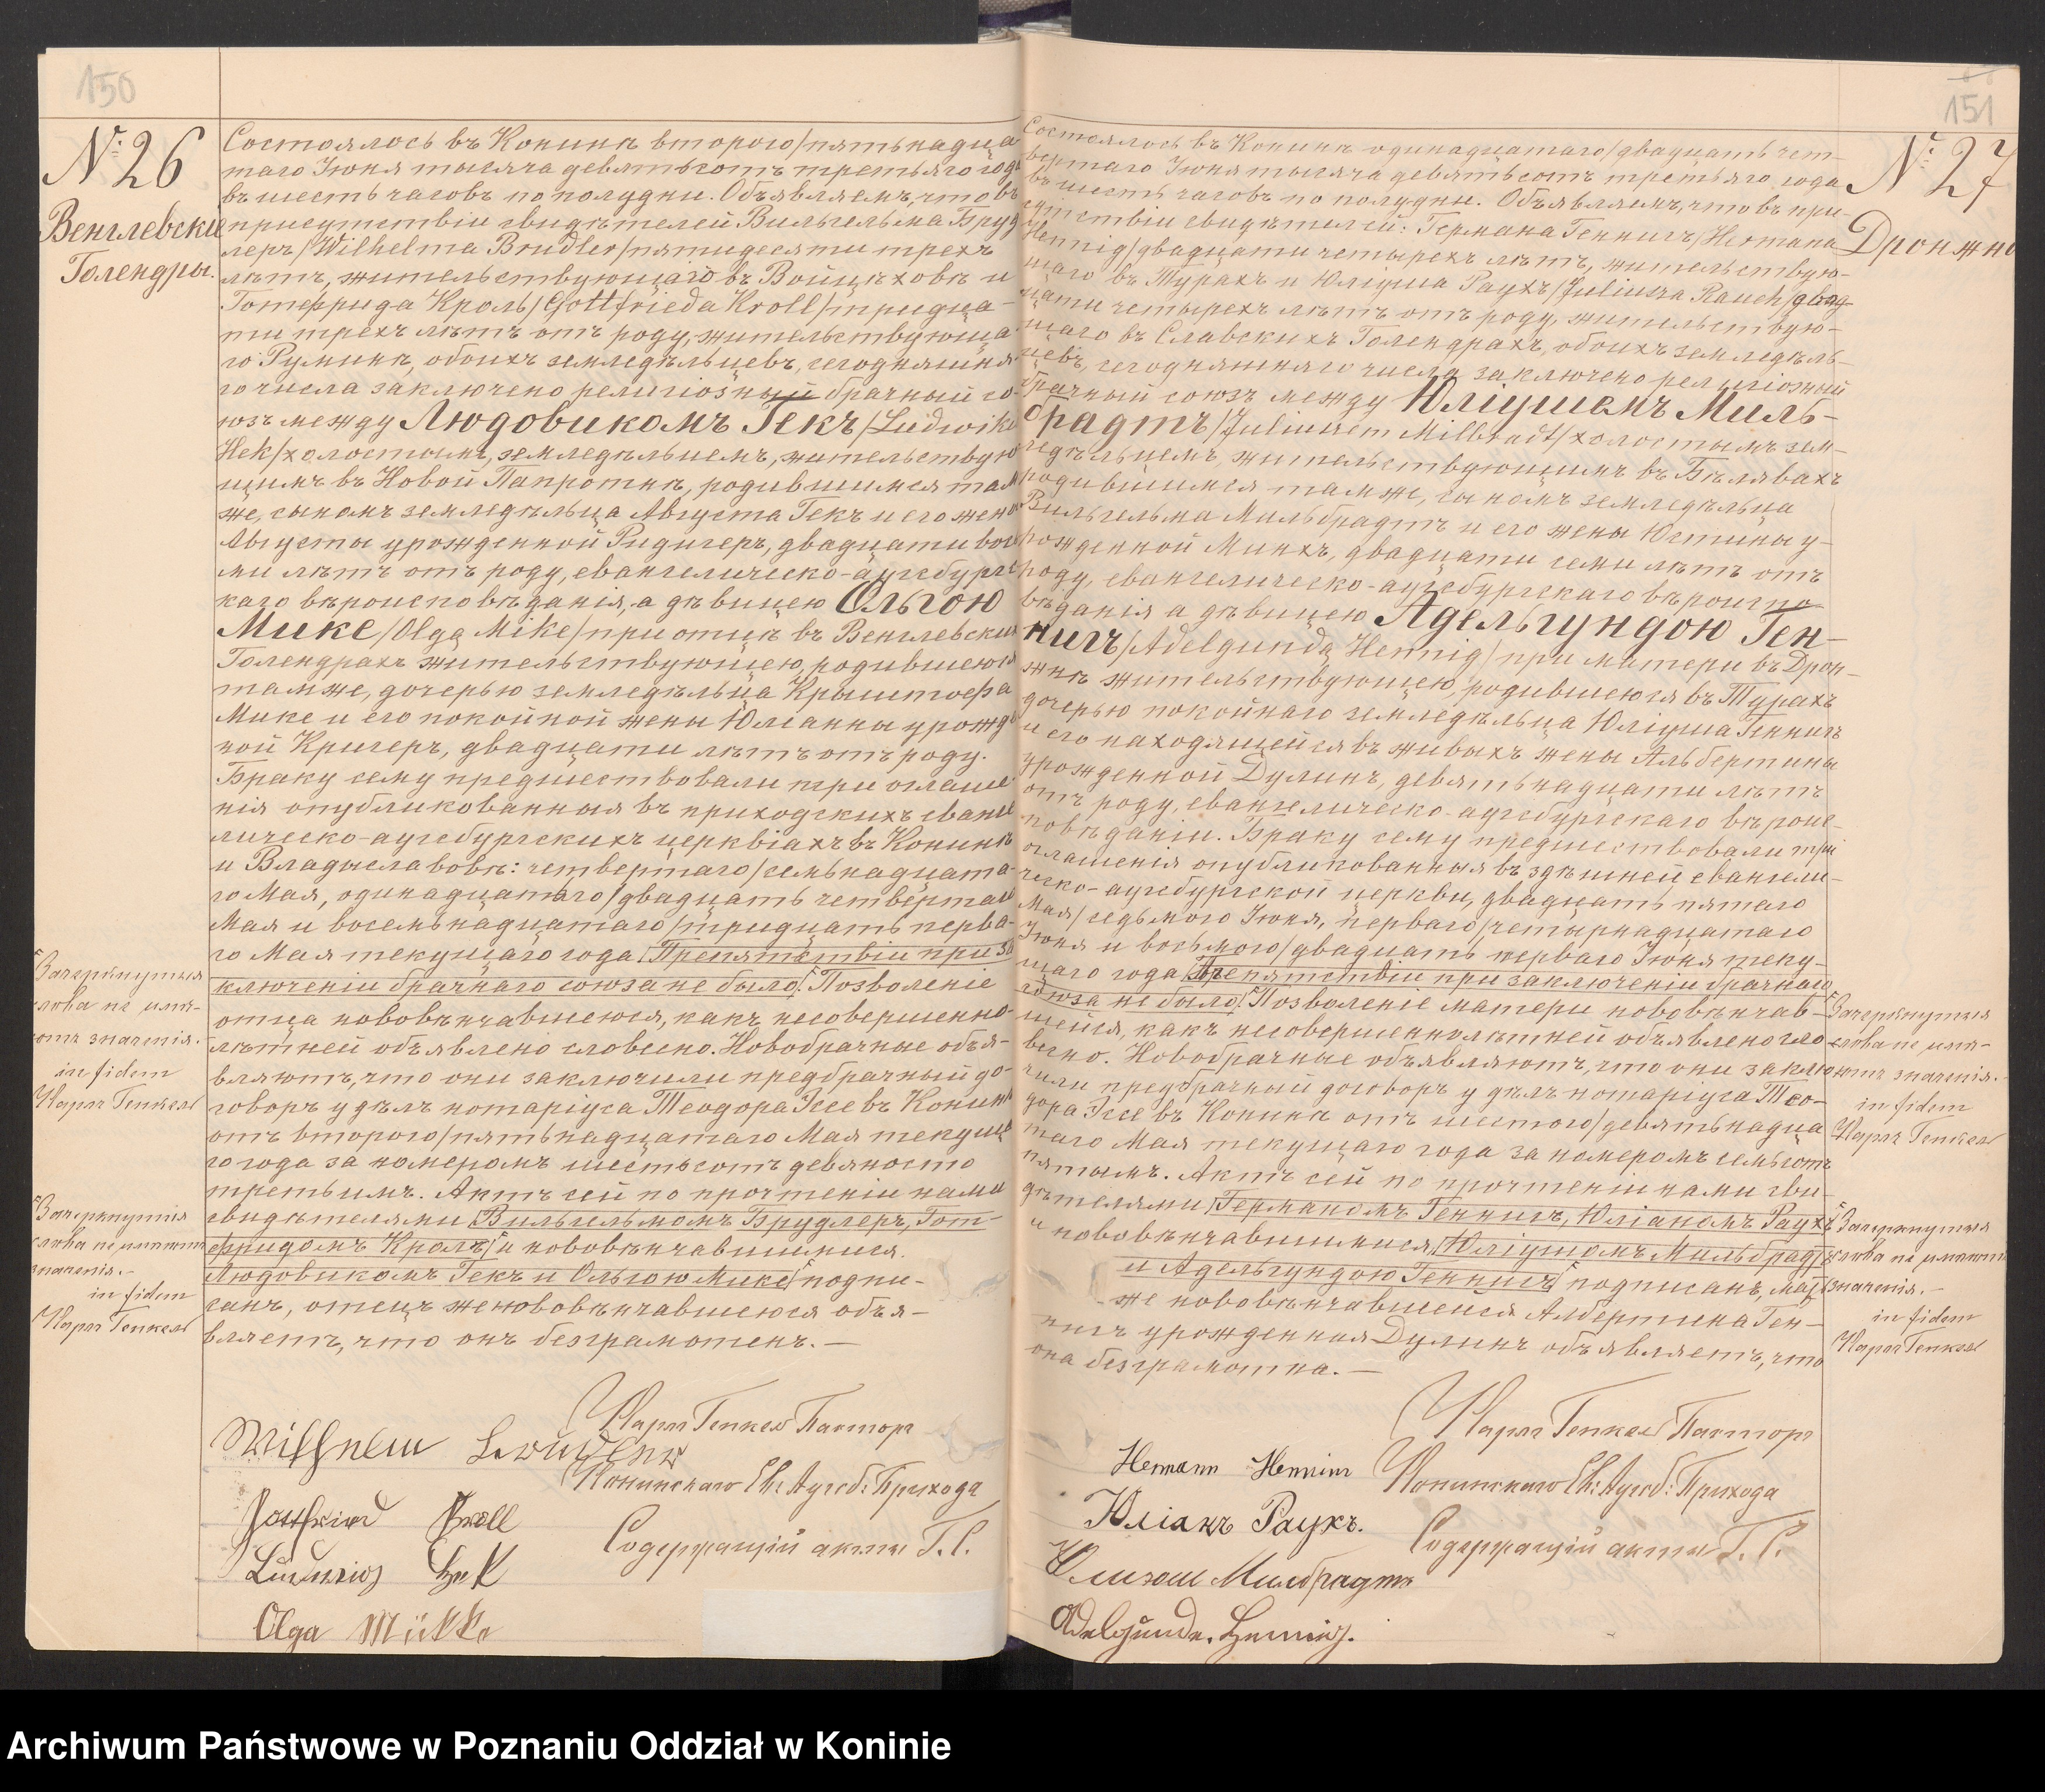 150
№ 26
Венглевскіе
Голендры.
Состоялось въ Конинѣ второго/пятьнадца
таго Іюня тысяча девятьсотъ третьяго года
въ шесть часовъ по полудни. Объявляемъ, что въ
присутствіи свидѣтелей Вильгельма Бруд
леръ/Wilhelma Brudler/пятидесяти трехъ
лѣтъ, жительствующаго въ Войцѣховѣ и
Готфрида Кроль/Gottfrieda Kroll/тридца-
ти трехъ лѣтъ отъ роду, жительствующа
го Руминѣ, обоихъ земледѣльцевъ, сегодняшня
го числа заключено религіозный брачный со-
юзъ между Людовикомъ Гекъ/Ludwikem
Hek/холостымъ, земледѣльцемъ, жительствую
щимъ въ Новой Папротнѣ, родившимся там
же, сыномъ земледѣльца Августа Гекъ и его жены
Августы урожденной Ридигеръ, двадцати вось
ми лѣтъ отъ роду, евангелическо-аугсбургс
каго вѣроисповѣданія, а дѣвицею Ольгою
Мике/Olgą Mike/при отцѣ въ Венглевскихъ
Голендрахъ жительствующею, родившеюся
тамже, дочерью земледѣльца Крыштофа
Мике и его покойной жены Юліанны урожден
ной Кригеръ, двадцати лѣтъ отъ роду.
Браку сему предшествовали три оглаше
нія опубликованныя въ приходскихъ еванге
лическо-аугсбургскихъ церквіахъ въ Конинѣ
и Владыславовѣ: четвертаго/семьнадцата-
го Мая, одинадцатаго/двадцать четвертаго
Мая и восемьнадцатаго/тридцать перва-
го Мая текущаго года. Препятствіи при за
ключеніи брачнаго союза не было. Позволеніе
отца нововѣнчавшеюся, какъ несовершенно-
лѣтней объявлено словесно. Новобрачные объя-
вляютъ, что они заключили предбрачный до-
говоръ у дѣлъ нотаріуса Теодора Эссе въ Конинѣ
отъ второго/пятьнадцатаго Мая текуща
го года за номеромъ шестьсотъ девяносто
третьимъ. Актъ сей по прочтеніи нами
свидѣтелями Вильгельмомъ Брудлеръ, Гот-
фридомъ Кроль и нововѣнчавшимися.
Людовикомъ Гекъ и Ольгою Мике подпи-
санъ, отецъ же нововѣнчавшеюся объя-
вляетъ, что онъ безграмотенъ.—
Зачеркнутыя
слова не имѣ-
ютъ значенія.
in fidem
Карлъ Генкель
Зачеркнутыя
слова не имѣютъ
значенія.—
in fidem
Карлъ Генкель
Карлъ Генкель Пасторъ
Конинскаго Ев: Аугсб: Прихода
Содержащій акты Г. С.
Gottfried Kroll
Ludwig Hek
Olga Mükke
151
№ 27
Дронжно
Состоялось въ Конинѣ одинадцатаго/двадцать чет-
вертаго Іюня тысяча девятьсотъ третьяго года
въ шесть часовъ по полудни. Объявляемъ, что въ при-
сутствіи свидѣтелей: Германа Геннигъ/Hermana
Hennig/двадцати четырехъ лѣтъ, жительствую-
щаго въ Турахъ и Юліуша Раухъ/Juliusza Rauch/двад-
цати четырехъ лѣтъ отъ роду, жительствую-
щаго въ Славскихъ Голендрахъ, обоихъ земледѣль-
цевъ, сегодняшняго числа заключено религіозный
брачный союзъ между Юліушемъ Миль-
брадтъ/Juliuszem Milbradt/холостымъ зем-
ледѣльцемъ, жительствующимъ въ Бѣлявахъ
родившимся тамже, сыномъ земледѣльца
Вильгельма Мильбрадтъ и его жены Юстины у-
рожденной Минхъ, двадцати семи лѣтъ отъ
роду, евангелическо-аугсбургскаго вѣроиспо
вѣданія а дѣвицею Адельгундою Ген-
нигъ/Adelgundą Hennig/при матери въ Дрон-
жнѣ жительствующею, родившеюся въ Турахъ
дочерью покойнаго земледѣльца Юліуша Геннигъ
и его находящейся въ живыхъ жены Альбертины
урожденной Дулинъ, девятьнадцати лѣтъ
отъ роду, евангелическо-аугсбургскаго вѣроис-
повѣданіи. Браку сему предшествовали три
оглашенія опубликованныя въ здѣшней евангели-
ческо-аугсбургской церкви, двадцать пятаго
Мая/седьмого Іюня, перваго/четырнадцатаго
Іюня и восьмого/двадцать перваго Іюня теку-
щаго года. Препятствіи при заключеніи брачнаго
союза не было. Позволеніе матери нововѣнчав-
шейся, какъ несовершеннолѣтней объявлено сло
весно. Новобрачные объявляютъ, что они заклю
чили предбрачный договоръ у дѣлъ нотаріуса Тео-
дора Эссе въ Конинѣ отъ шестого/девятьнадца
таго Мая текущаго года за номеромъ семьсотъ
пятымъ. Актъ сей по прочтеніи нами сви-
дѣтелями, Германомъ Геннигъ, Юліаномъ Раухъ
и нововѣнчавшимися, Юліушомъ Мильбрадтъ
и Адельгундою Геннигъ подписанъ, мать
же нововѣнчавшеися Албертина Ген-
нигъ урожденная Дулинъ объявляетъ, что
она безграмотна.—
Зачеркнутыя
слова не имѣ-
ютъ значенія.—
in fidem
Карлъ Генкель
Зачеркнутыя
слова не имѣютъ
значенія.—
in fidem
Карлъ Генкель
Карлъ Генкель Пасторъ
Конинскаго Ев: Аугсб: Прихода
Содержащій акты Г. С.
Hermann Hennig
Юліанъ Раухъ.
Юлиюш Милбрадтъ
Adelgunde Hennig.
Archiwum Państwowe w Poznaniu Oddział w Koninie